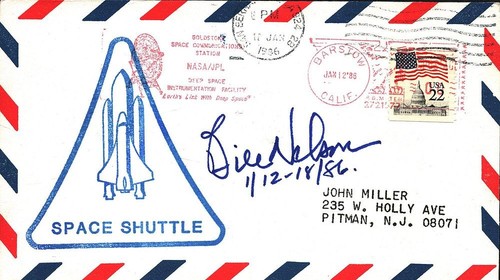 PM
JAN
1986
GOLDSTONE
SPACE COMMUNICATIONS
STATION
NASA/JPL
DEEP SPACE
INSTRUMENTATION FACILITY
"Earth's Link With Deep Space"
BARSTOW
JAN 12 '86
CALIF.
USA
22
Bill Nelson
1/12-18/86.
JOHN MILLER
235 W. HOLLY AVE
PITMAN, N.J. 08071
SPACE SHUTTLE